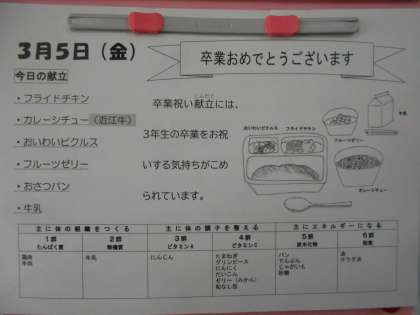 3月5日（金）
卒業おめでとうございます
今日の献立
・フライドチキン
・カレーシチュー（近江牛）
・おいわいピクルス
・フルーツゼリー
・おさつパン
・牛乳
卒業祝い献立には、
3年生の卒業をお祝
いする気持ちがこめ
られています。
おいわいピクルス
フライドチキン
フルーツゼリー
牛乳
カレーシチュー
主に体の組織をつくる
主に体の調子を整える
主にエネルギーになる
1群 2群 3群 4群 5群 6群
たんぱく質 無機質 ビタミンA ビタミンC 炭水化物 脂質
鶏肉
牛肉
牛乳
にんじん
たまねぎ
グリンピース
にんにく
だいこん
ゼリー（みかん）
和なし缶
パン
でんぷん
じゃがいも
砂糖
油
サラダ油